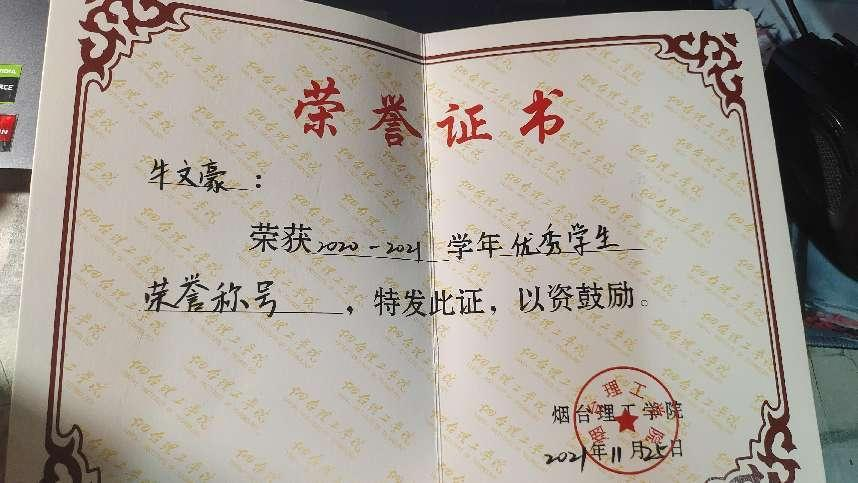 荣誉证书
牛文豪：
荣获2020-2021学年优秀学生
荣誉称号，特发此证，以资鼓励。
烟台理工学院
2021年11月25日